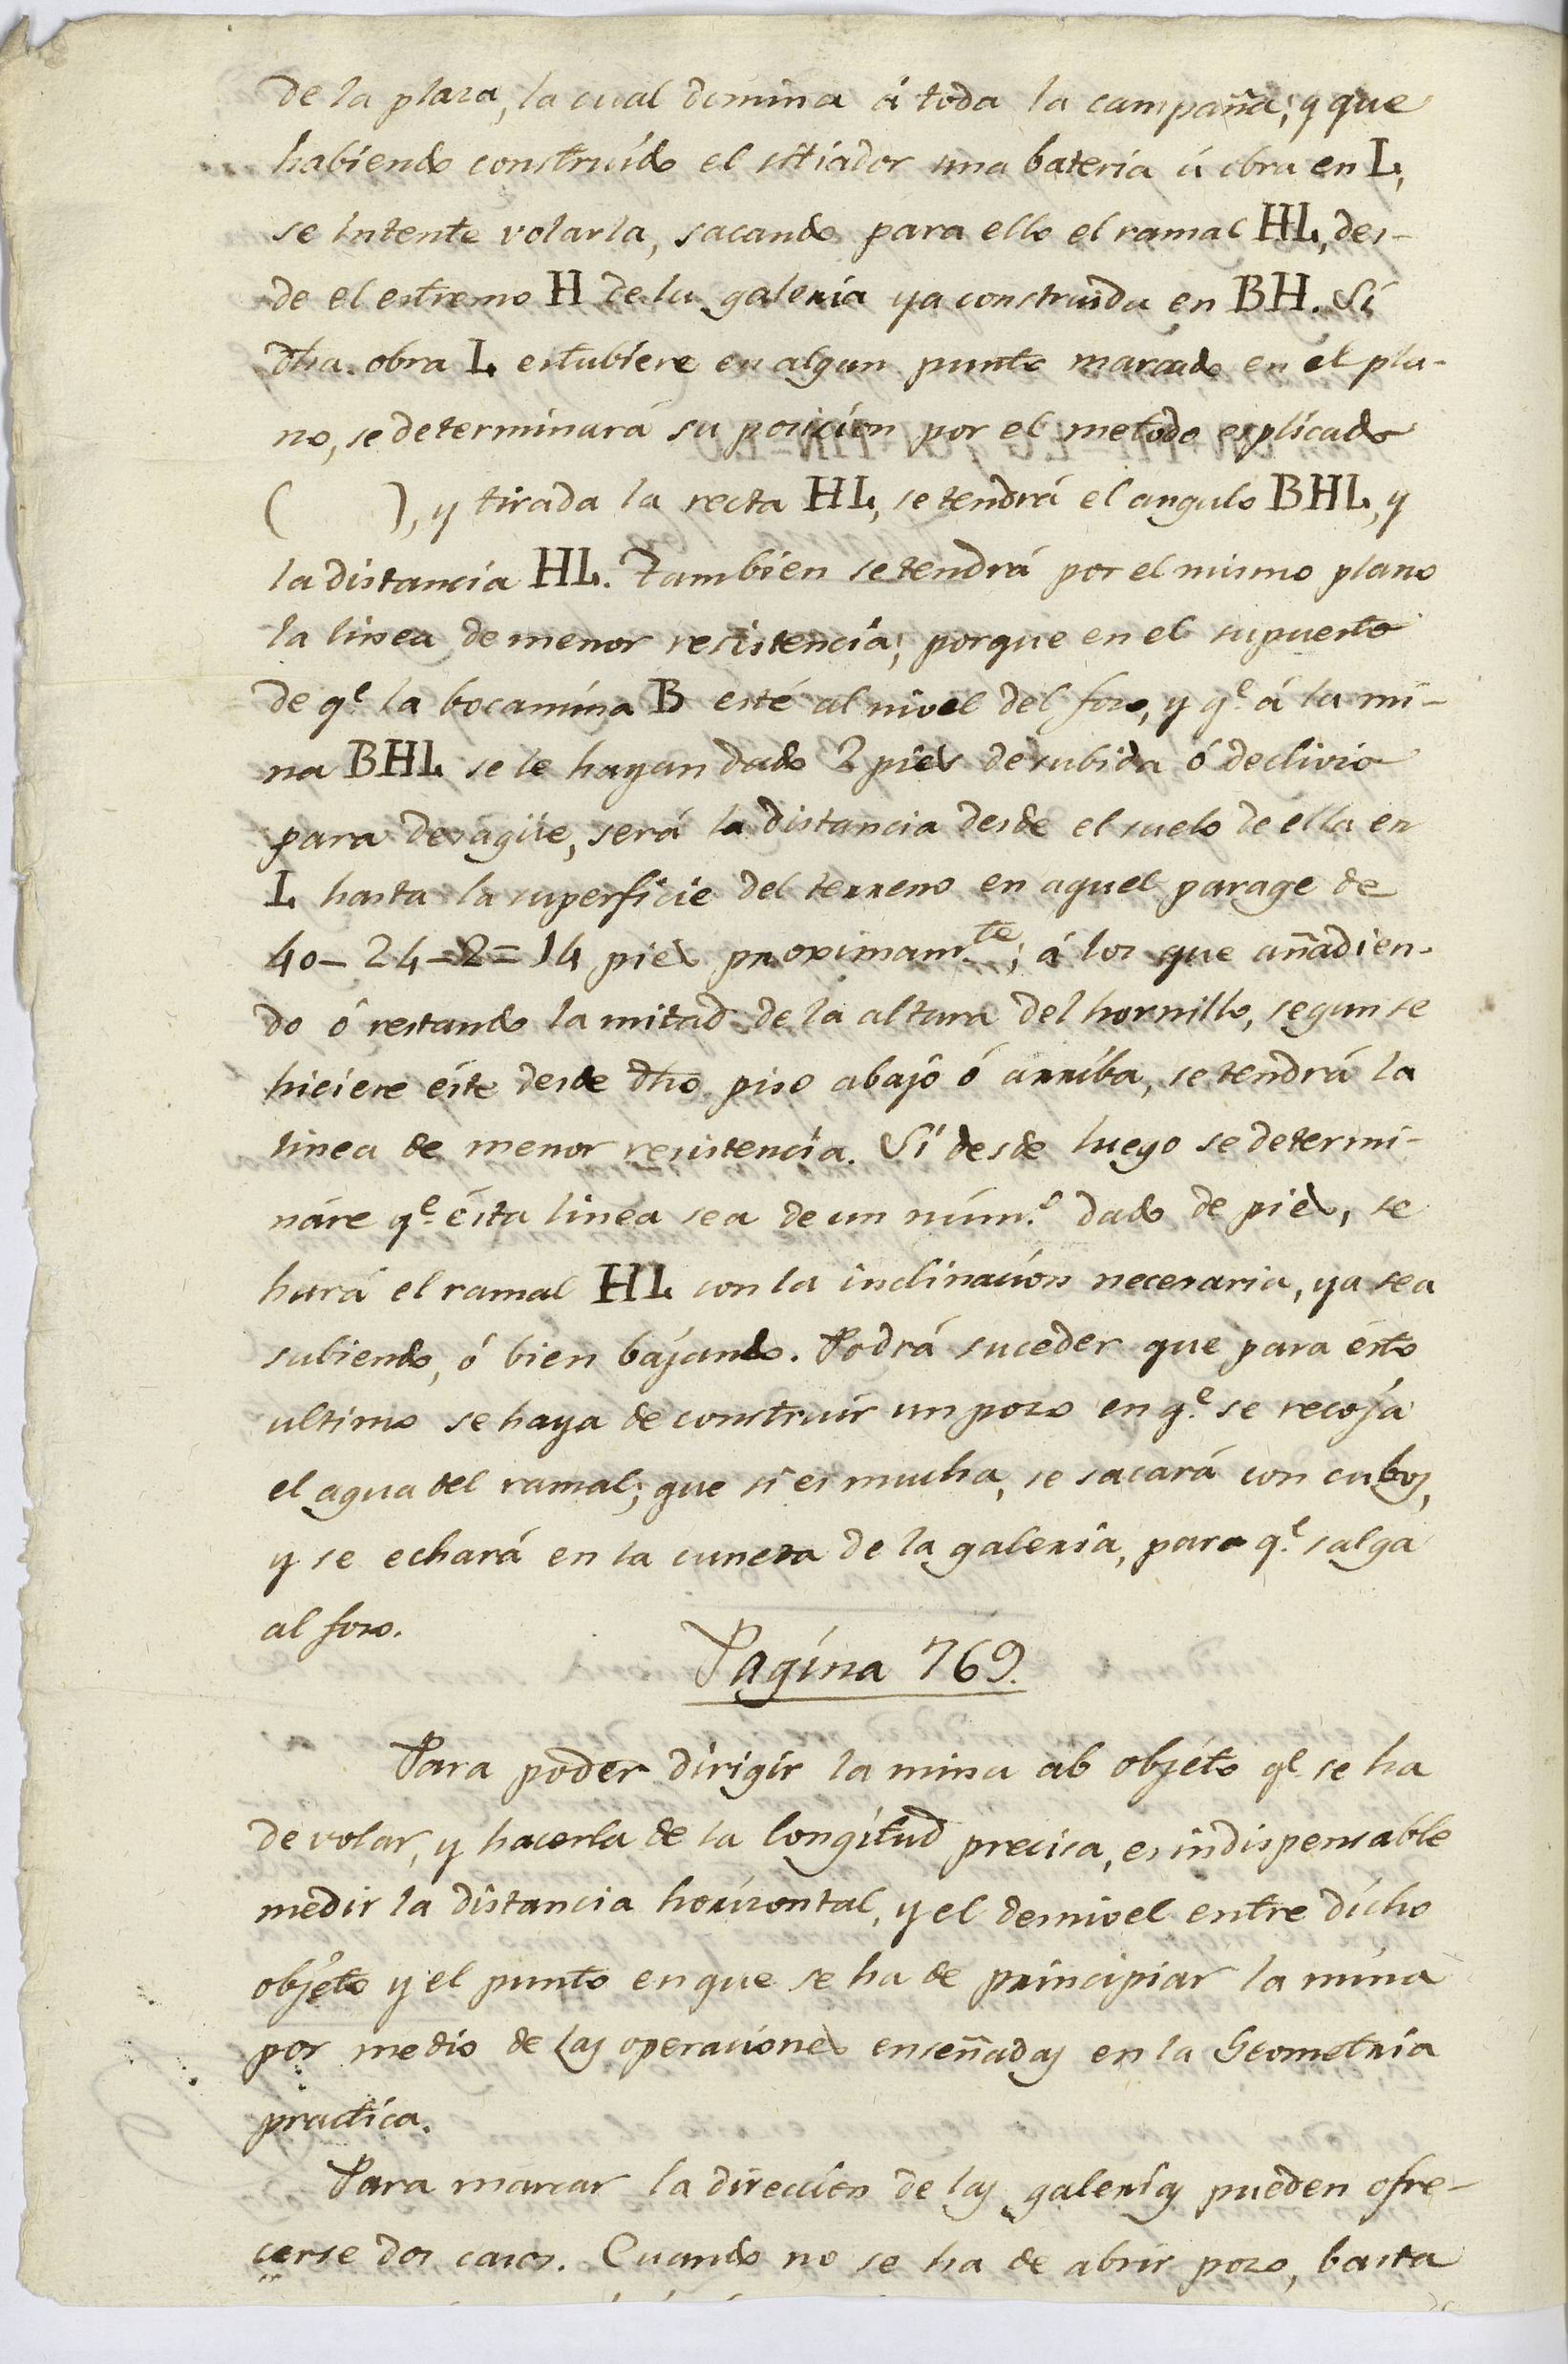 de la plaza, la cual domina á toda la campaña; y que
habiendo construído el sitiador una bateria ú obra en L,
se intente volarla, sacando para ello el ramal HL, des-
de el estremo H de la galeria ya construida en BH. Si
dha. obra L estubiere en algun punto marcado en el pla-
no, se determinará su posicion por el metodo esplicado
( ), y tirada la recta HL, se tendrá el angulo BHL, y
la distancia HL. Tambien se tendrá por el mismo plano
la linea de menor resistencia; porque en el supuesto
de q.e la bocamina B esté al nivel del foso, y q.e á la mi-
na BHL se le hayan dado 2 pies de subida ó declivio
para desagüe, será la distancia desde el suelo de ella en
L hasta la superficie del terreno en aquel parage de
40 - 24 - 2 = 14 pies proximam.te; á los que añadien-
do ó restando la mitad de la altura del hornillo, segun se
hiciere éste desde dho piso abajo ó arriba, se tendrá la
linea de menor resistencia. Si desde luego se determi-
náre q.e ésta linea sea de un núm.o dado de pies, se
hará el ramal HL con la inclinacion necesaria, ya sea
subiendo, ó bien bajando. Podrá suceder que para esto
ultimo se haya de construir un pozo en q.e se recoja
el agua del ramal; que si es mucha, se sacará con cubos,
y se echará en la cuneta de la galeria, para q.e salga
al foso.
Pagína 769.
Para poder dirigir la mina al objéto q.e se ha
de volar, y hacerla de la longitud precisa, es indispensable
medir la distancia horizontal, y el desnivel entre dicho
objéto y el punto en que se ha de principiar la mina
por medio de las operaciones enseñadas en la Geometria
practica.
Para marcar la direccion de las galerias pueden ofre-
cerse dos casos. Cuando no se ha de abrir pozo, basta